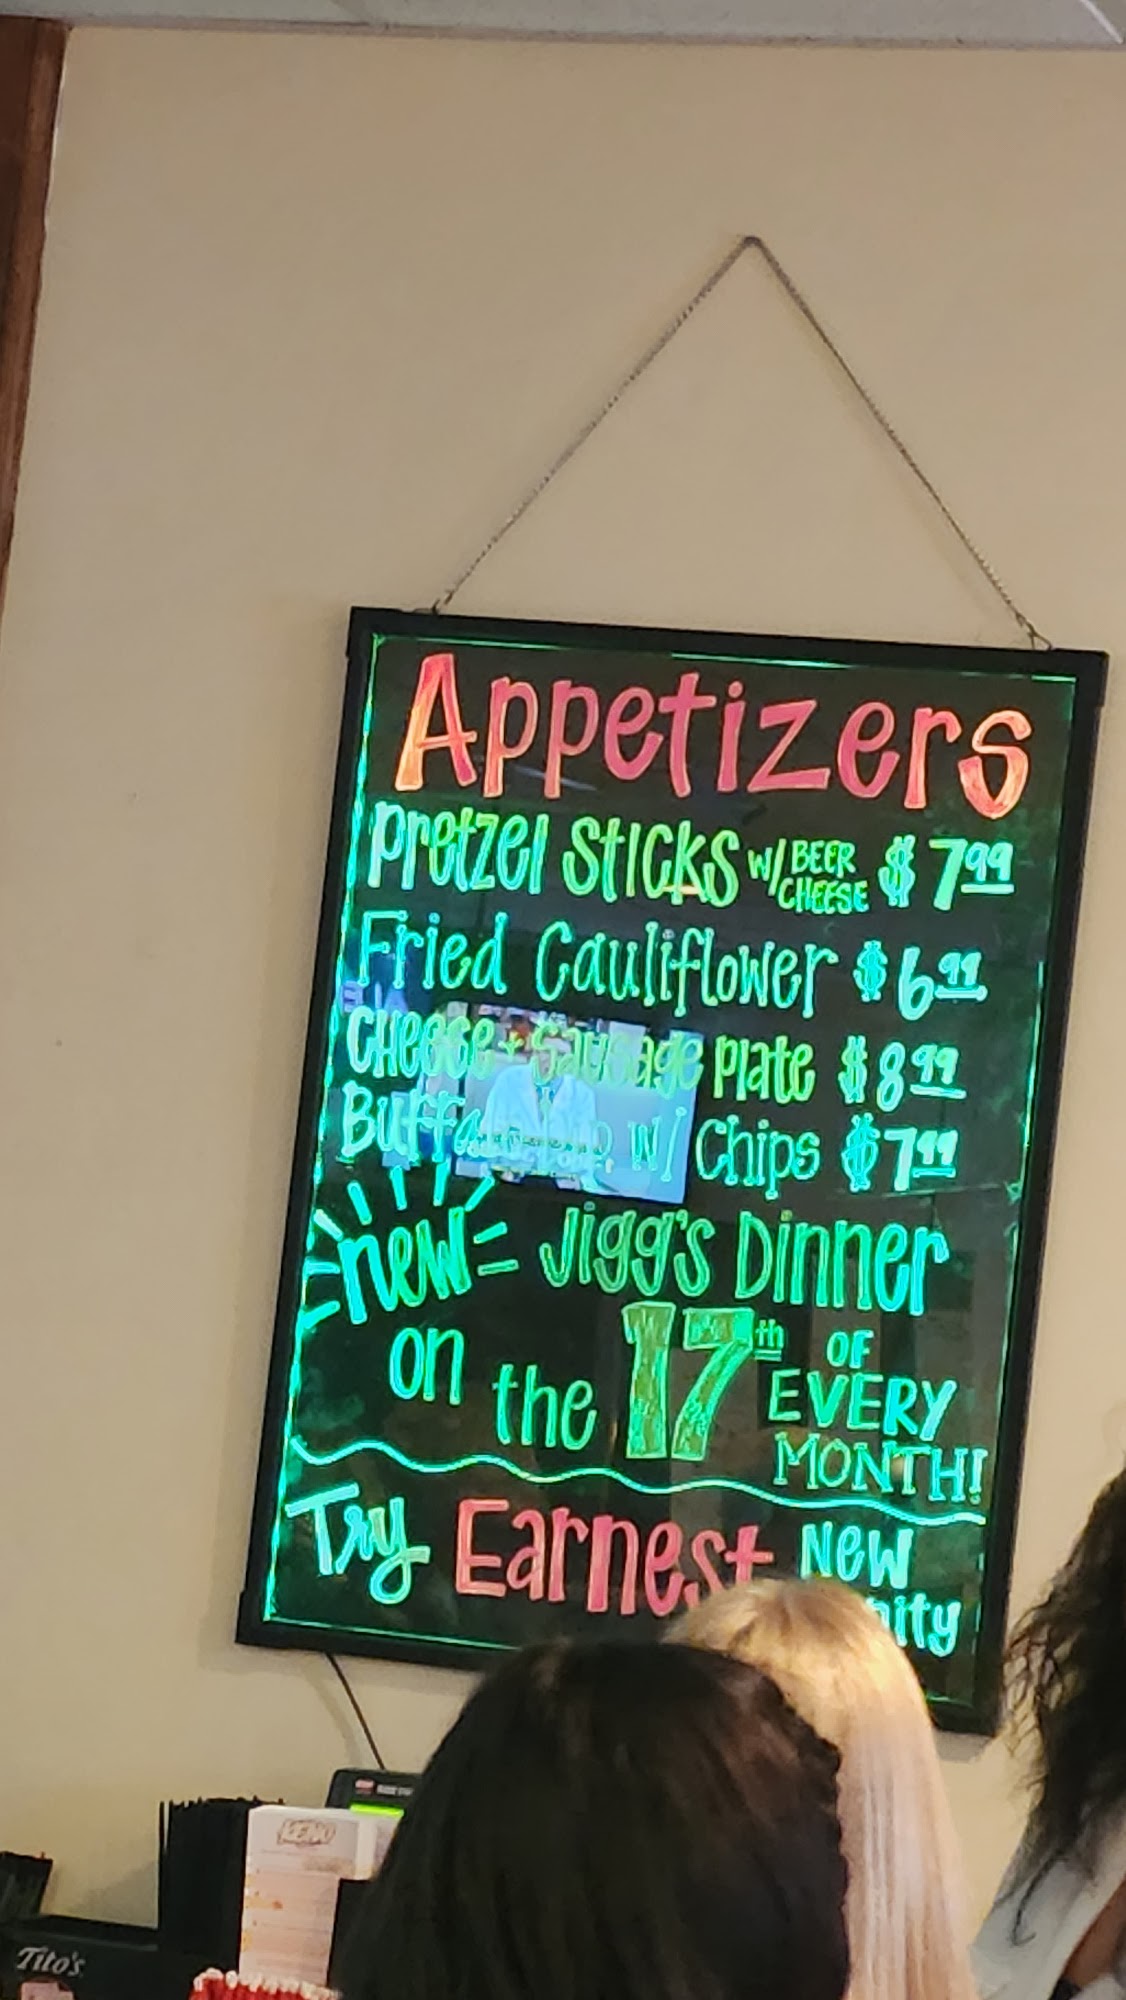 Appetizers
Pretzel Sticks w/ BEER CHEESE $7.99
Fried Cauliflower $6.99
Cheese + Sausage Plate $8.99
w/ Chips $7.99
new Jigg's Dinner
on the 17th OF EVERY MONTH!
Try Earnest New
KENO
Tito's